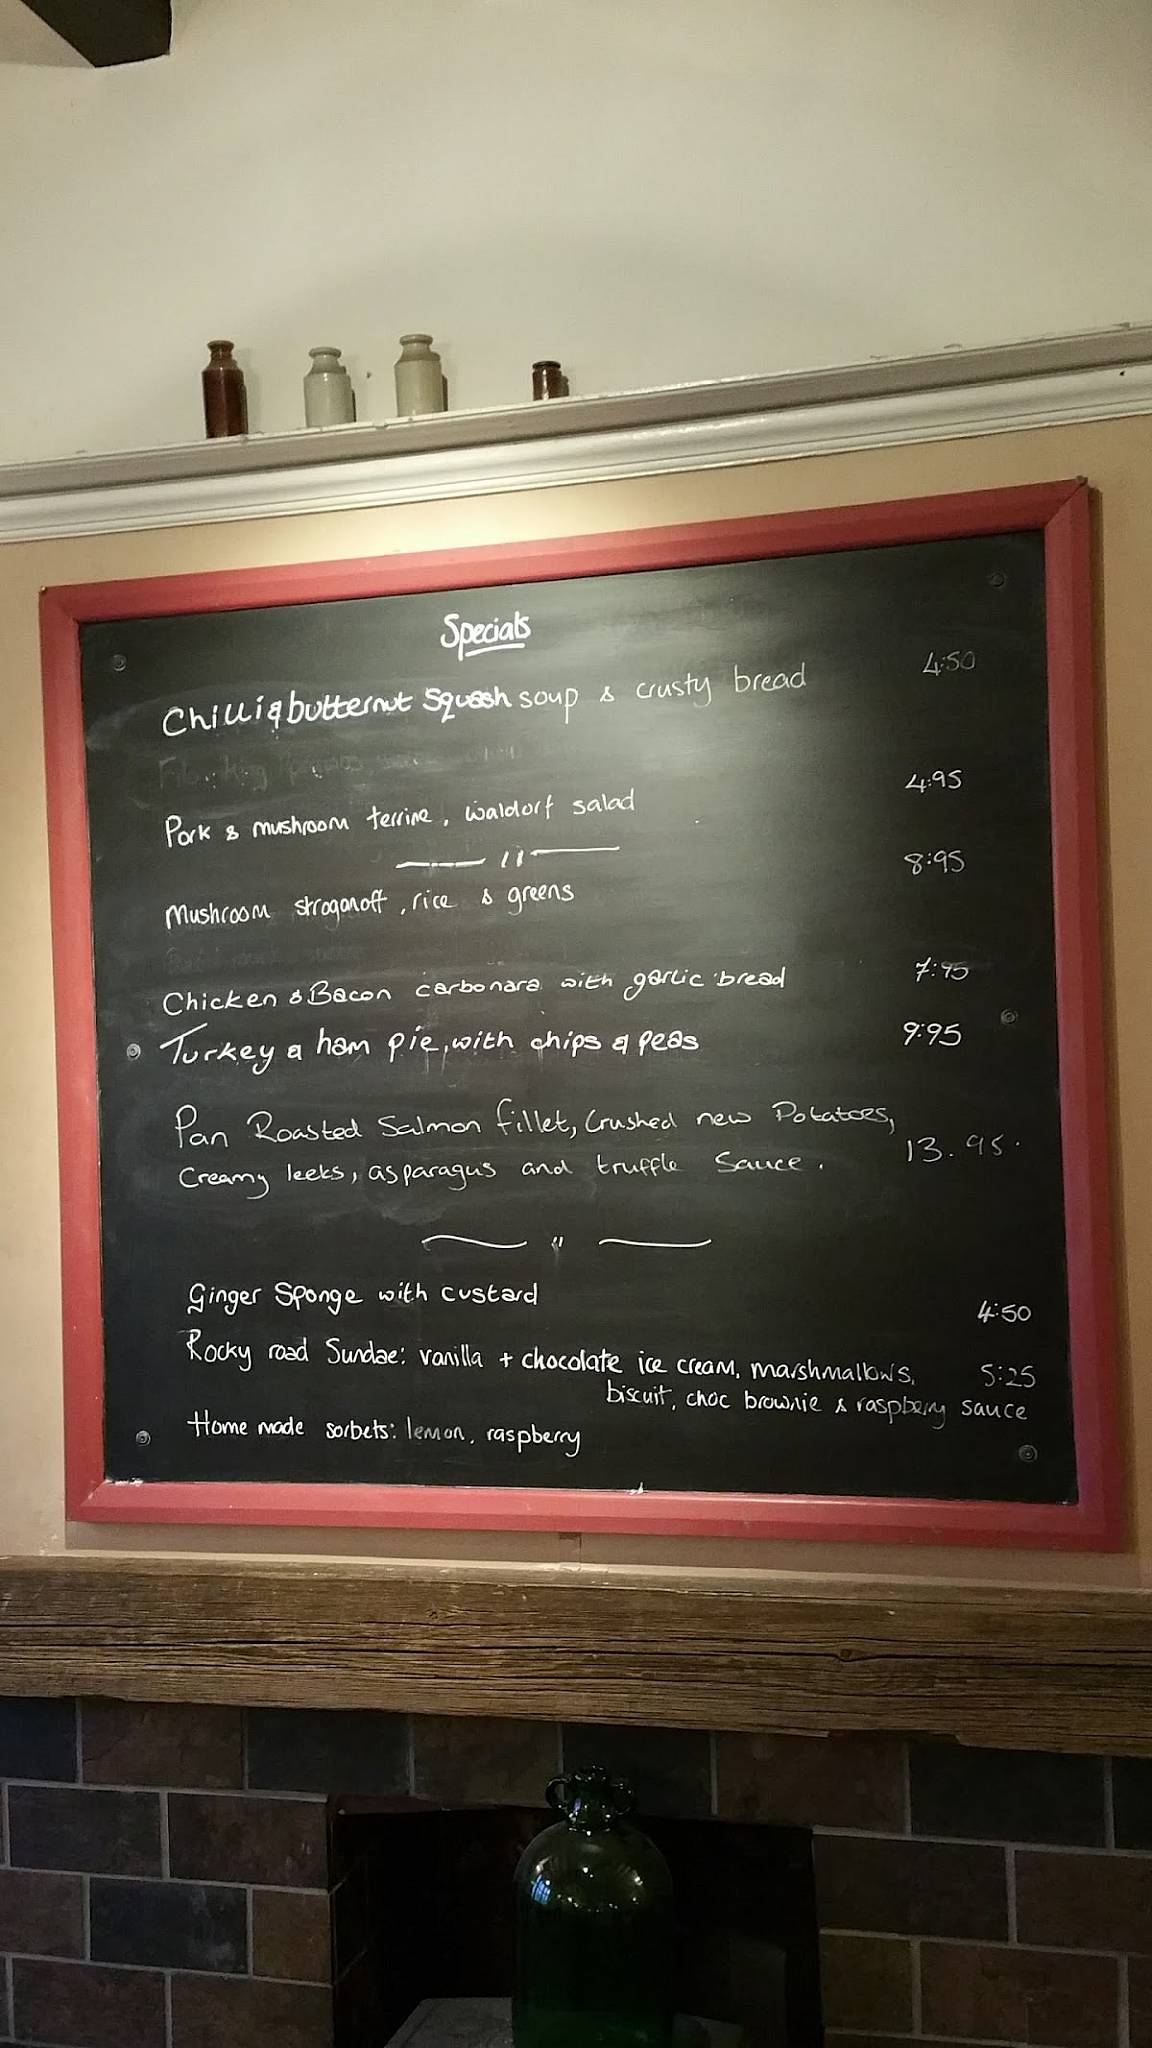 Specials
Chilli & butternut Squash soup & crusty bread 4:50
Pork & mushroom terrine, waldorf salad 4:95
Mushroom stroganoff, rice & greens 8:95
Chicken & Bacon carbonara with garlic bread 7:95
Turkey & ham pie, with chips & peas 9:95
Pan Roasted Salmon fillet, Crushed new Potatoes,
Creamy leeks, asparagus and truffle Sauce. 13.95.
Ginger Sponge with custard 4:50
Rocky road Sundae: vanilla + chocolate ice cream, marshmallows, 5:25
biscuit, choc brownie & raspberry sauce
Home made sorbets: lemon, raspberry